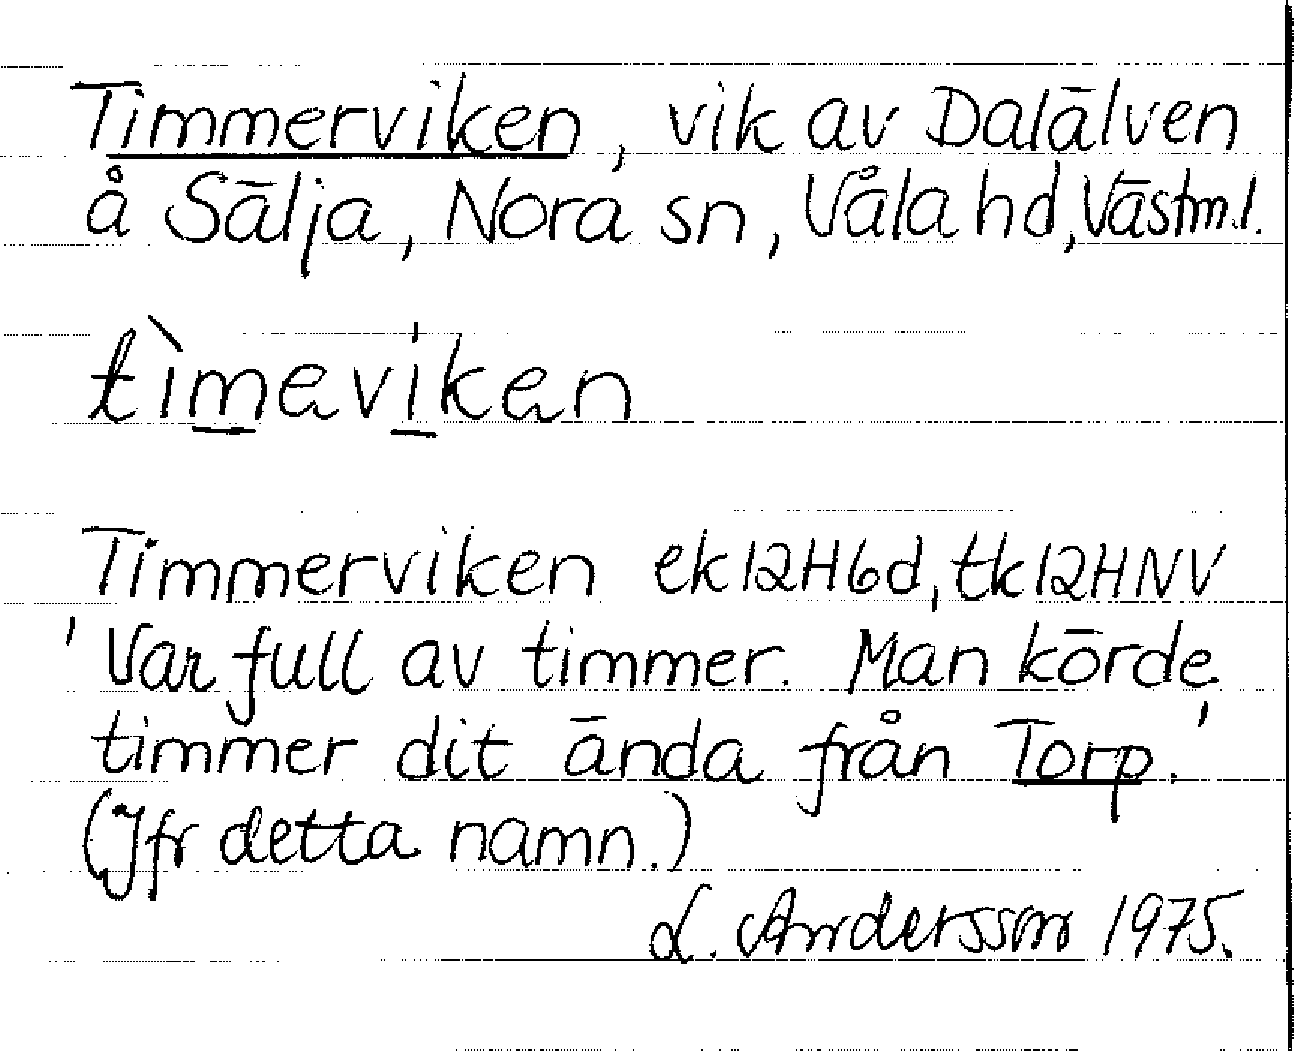 Timmerviken, vik av Dalälven
å Sälja, Nora sn, Våla hd, Västm.l.
tìmaviken
Timmerviken ek12H6d, tk12HNV
'Var full av timmer. Man körde
timmer dit ända från Torp.'
(Jfr detta namn.)
L. Andersson 1975.